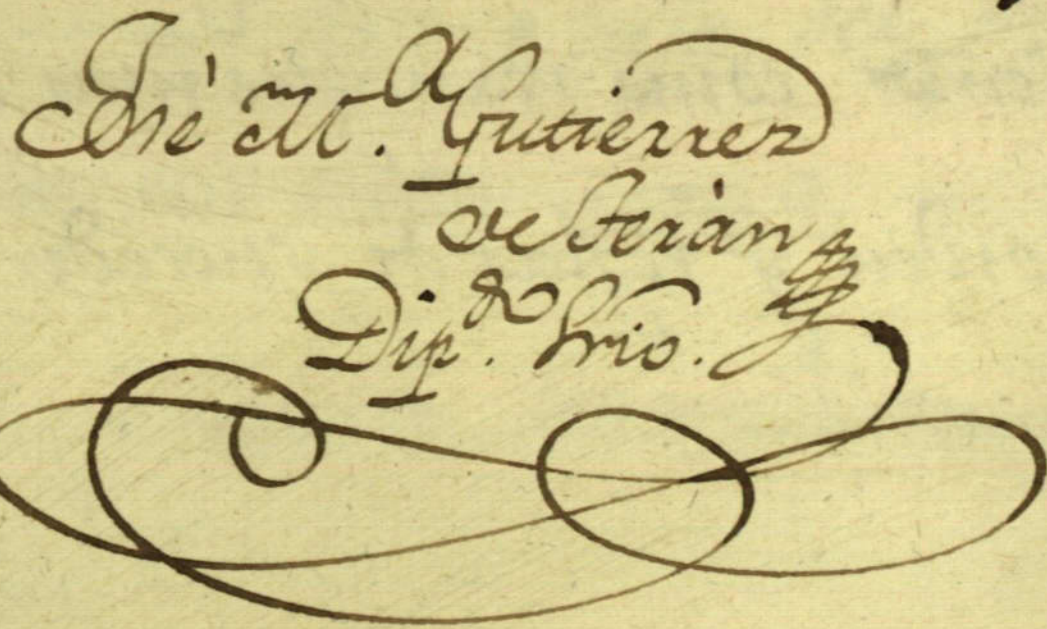 José M.ª Gutierrez
de Teràn
Dip.do Srio.